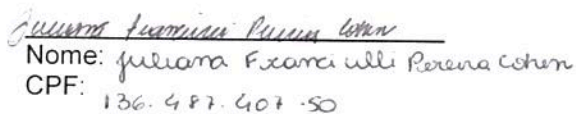 Juliana Francisulli Pereira Cohen
Nome: Juliana Franciulli Pereira Cohen
CPF: 136.487.407-50